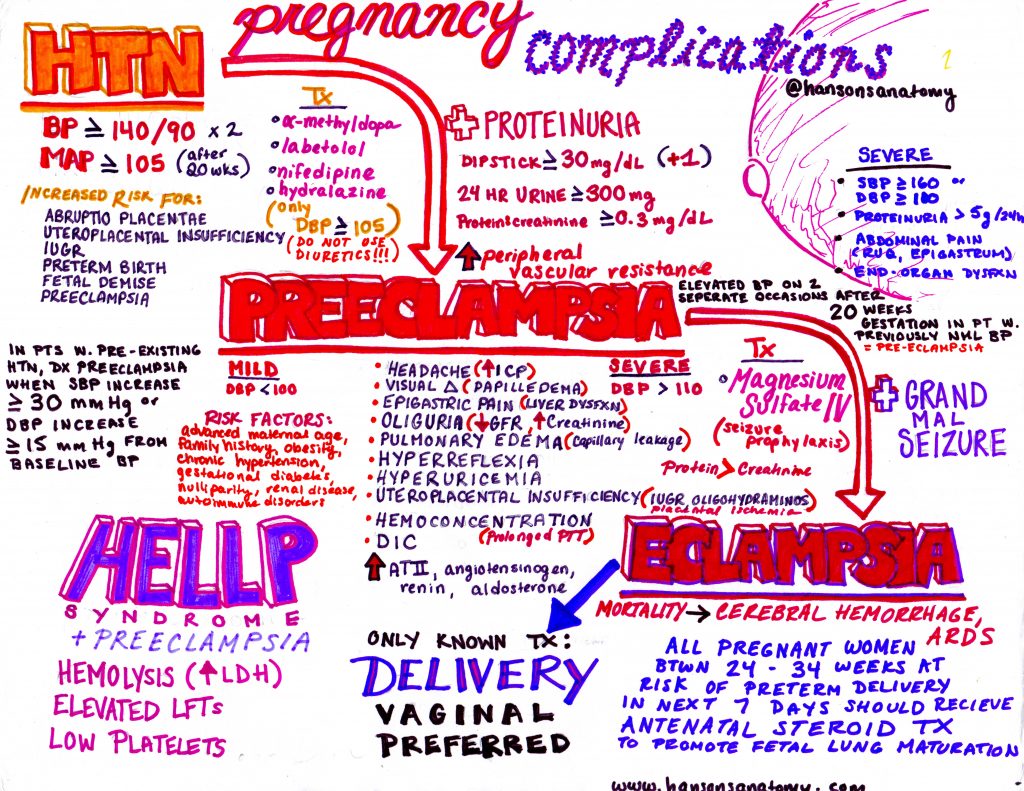 pregnancy
complications
@hansonsanatomy
1
HTN
BP ≥ 140/90 x 2
MAP ≥ 105 (after
20 wks)
INCREASED RISK FOR:
ABRUPTIO PLACENTAE
UTEROPLACENTAL INSUFFICIENCY
IUGR
PRETERM BIRTH
FETAL DEMISE
PREECLAMPSIA
Tx
α-methyldopa
labetolol
nifedipine
hydralazine
(only
DBP ≥ 105)
(DO NOT USE
DIURETICS!!!)
+ PROTEINURIA
DIPSTICK ≥ 30 mg/dL (+1)
24 HR URINE ≥ 300 mg
Protein:creatinine ≥ 0.3 mg/dL
↑ peripheral
vascular resistance
SEVERE
• SBP ≥ 160 or
DBP ≥ 110
• PROTEINURIA > 5g/24h
• ABDOMINAL PAIN
(RUQ, EPIGASTRUM)
• END-ORGAN DYSFXN
PREECLAMPSIA
ELEVATED BP ON 2
SEPERATE OCCASIONS AFTER
20 WEEKS
GESTATION IN PT W.
PREVIOUSLY NML BP
= PRE-ECLAMPSIA
IN PTS W. PRE-EXISTING
HTN, DX PREECLAMPSIA
WHEN SBP INCREASE
≥ 30 mmHg or
DBP INCREASE
≥ 15 mm Hg FROM
BASELINE BP
MILD
DBP < 100
RISK FACTORS:
advanced maternal age,
family history, obesity,
chronic hypertension,
gestational diabetes,
nulliparity, renal disease,
autoimmune disorders
• HEADACHE (↑ICP)
• VISUAL Δ (PAPILLEDEMA)
• EPIGASTRIC PAIN (LIVER DYSFXN)
• OLIGURIA (↓GFR, ↑Creatinine)
• PULMONARY EDEMA (capillary leakage)
• HYPERREFLEXIA
• HYPERURICEMIA
• UTEROPLACENTAL INSUFFICIENCY (IUGR, OLIGOHYDRAMINOS
placental ischemia
• HEMOCONCENTRATION
• DIC (Prolonged PTT)
↑ ATII, angiotensinogen,
renin, aldosterone
SEVERE
DBP > 110
Tx
• Magnesium
Sulfate IV
(seizure
prophylaxis)
Protein > Creatinine
+ GRAND
MAL
SEIZURE
HELLP
SYNDROME
+ PREECLAMPSIA
HEMOLYSIS (↑LDH)
ELEVATED LFTs
LOW PLATELETS
ONLY KNOWN TX:
DELIVERY
VAGINAL
PREFERRED
ECLAMPSIA
MORTALITY → CEREBRAL HEMORRHAGE,
ARDS
ALL PREGNANT WOMEN
BTWN 24 - 34 WEEKS AT
RISK OF PRETERM DELIVERY
IN NEXT 7 DAYS SHOULD RECIEVE
ANTENATAL STEROID TX
TO PROMOTE FETAL LUNG MATURATION
www.hansonsanatomy.com